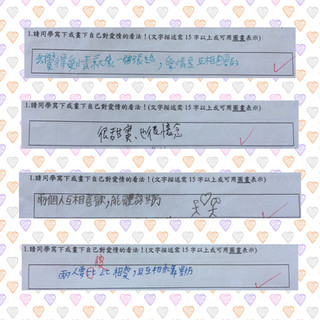 1.請同學寫下或畫下自己對愛情的看法！(文字描述需 15 字以上或可用圖畫表示)
我覺得愛情就是一個張地，愛情是互相喜的
1.請同學寫下或畫下自己對愛情的看法！(文字描述需 15 字以上或可用圖畫表示)
很甜蜜、也很
1.請同學寫下或畫下自己對愛情的看法！(文字描述需 15 字以上或可用圖畫表示)
兩個人互相喜歡，能體諒對方
1.請同學寫下或畫下自己對愛情的看法！(文字描述需 15 字以上或可用圖畫表示)
兩人要彼此相愛，且互相尊重對方